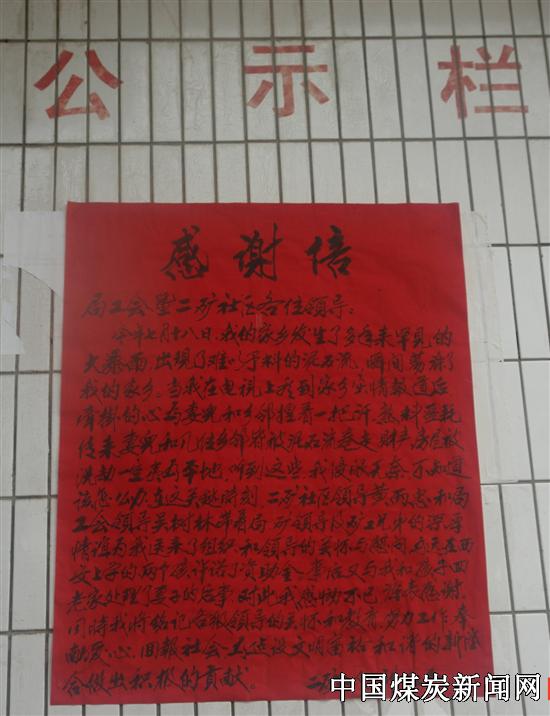 公示栏
感谢信
局工会暨二矿社区各位领导：
今年七月十八日，我的家乡发生了多年来罕见的
大暴雨，出现了难以预料的泥石流，瞬间荡涤了
我的家乡。当我在电视上看到家乡灾情报道后
牵掛的心为妻儿和乡邻捏着一把汗，熟料噩耗
传来妻儿和几位乡邻将被泥石流卷走财产房屋被
洗劫一空 听到这些，我泪眼 不知道
该怎么办 在这关键时刻 二矿社区领导黄雨忠和局
工会领导关树林带着局 矿领导及矿工兄弟的深厚
情谊为我送来了组织和领导的关怀与慰问 在西
安上学的两个孩 了资助金。事后又与我和 四
老家处理了妻子的后事 对此我感动不已 谨表感谢
同时我将铭记各级领导的关怀和教育，努力工作奉
献爱心 回报社会 建设文明富裕和谐的新
做出积极的贡献
二矿
中国煤炭新闻网